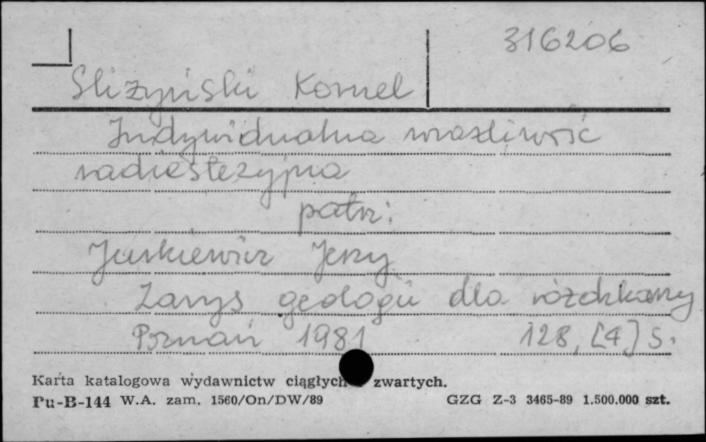 316206
Śliżyński Kornel
Indywidualna wrażliwość
radiestezyjna
patrz:
Jurkiewicz Jerzy
Zarys geologii dla różdżkarzy
Poznań 1981 128, [4] s.
Karta katalogowa wydawnictw ciągłych zwartych.
Pu-B-144 W.A. zam. 1560/On/DW/89 GZG Z-3 3465-89 1.500.000 szt.